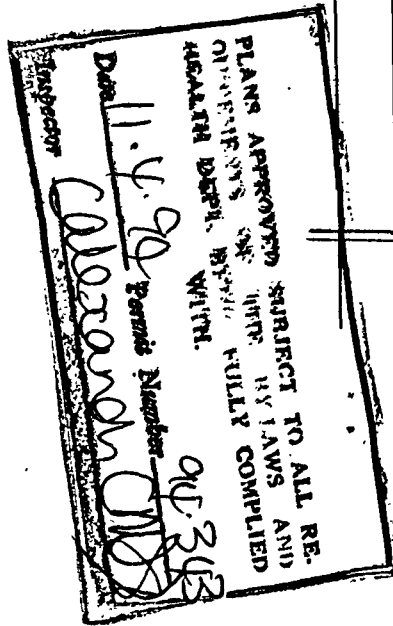 PLANS APPROVED SUBJECT TO ALL RE-
QUIREMENTS OF THE BY LAWS AND
HEALTH DEPT. BEING FULLY COMPLIED
WITH.
Date Permit Number 94-343
Inspector